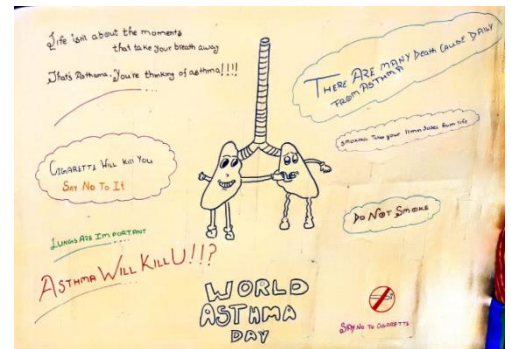 Life isn't about the moments
that take your breath away
That's Asthma. You're thinking of asthma!!!!
THERE ARE MANY DEATH CAUSE DAILY
FROM ASTHMA
SMOKING Take your 11min 
CIGARETTE WILL KILL YOU
SAY NO TO IT
DO NOT SMOKE
LUNGS ARE IMPORTANT
ASTHMA WILL KILL U!!?
WORLD
ASTHMA
DAY
SAY NO TO CIGARETTE